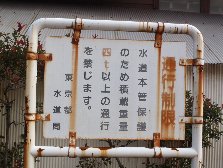 通行制限
水道本管保護
のため積載重量
4t以上の通行
を禁じます。
東京都
水道局